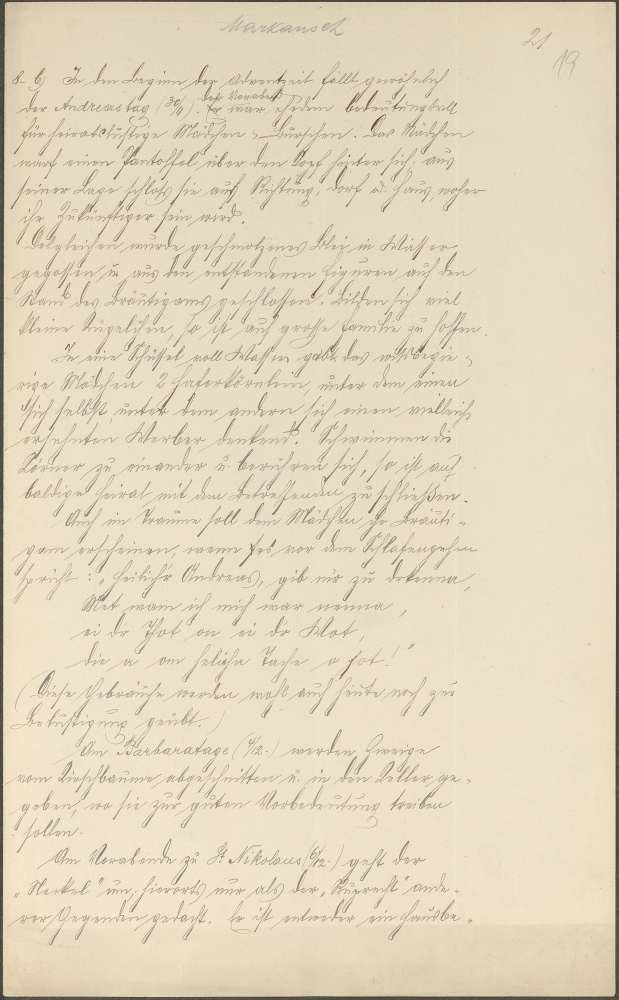 Markausch
21
19
8. b) In den Beginn der Adventzeit fällt gewöhnlich
der Andreastag (30/11). Der Vorabend war ehedem bedeutungsvoll
für heiratslustige Mädchen u. Burschen. Das Mädchen
warf einen Pantoffel über den Kopf hinter sich; aus
seiner Lage schloß sie auf Richtung, Dorf u. Haus, woher
ihr Zukünftiger sein wird.
Desgleichen wurde geschmolzenes Blei in Wasser
gegossen u. aus den entstandenen Figuren auf den
Stand des Bräutigams geschlossen. Bilden sich viel
kleine Kügelchen, so ist auf große Familie zu hoffen.
In eine Schüssel voll Wasser gab das wißbegie-
rige Mädchen 2 Haferkörnlein, unter dem einen
sich selbst, unter dem andern sich einen vielleicht
ersehnten Werber denkend. Schwimmen die
Körner zu einander u. berühren sich, so ist auf
baldige Heirat mit dem Betreffenden zu schließen.
Auch im Traume soll dem Mädchen ihr Bräuti-
gam erscheinen, wenn es vor dem Schlafengehen
spricht: „Heilich'r Andreas, gib mir zu drkenna,
Met wam ich mich war nenna,
ei dr Thot, on ei dr Wot,
die a om helicha Tache o hot!"
(Diese Gebräuche werden wohl auch heute noch zur
Belustigung geübt.)
Am Barbaratage (4/12.) werden Zweige
vom Kirschbaume abgeschnitten u. in den Keller ge-
geben, wo sie zur guten Vorbedeutung treiben
sollen.
Am Vorabende zu St. Nikolaus (6/12.) geht der
„Neckel" um, hierorts nur als der „Ruprecht" ande-
rer Gegenden gedacht. Er ist entweder ein Hausbe-